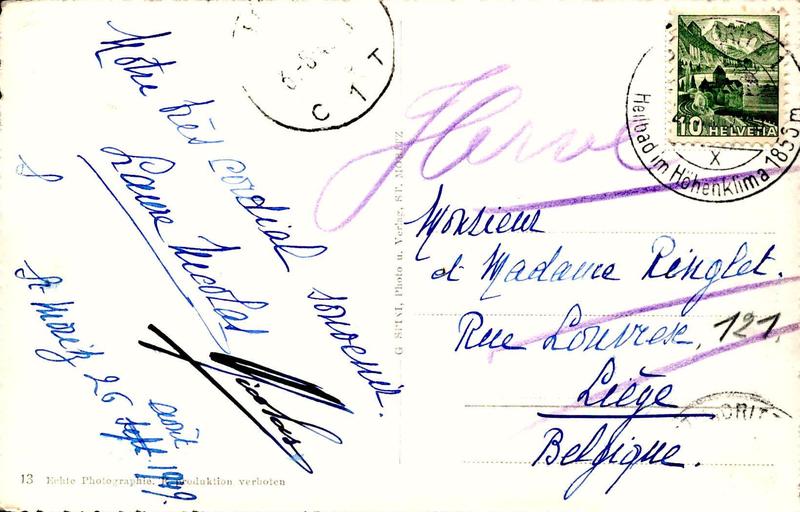 Notre très cordial souvenir.
Laure Nicolas
Nicolas
St Moritz 26 sept. 1949.
août
13 Echte Photographie. Reproduktion verboten
G SPINI, Photo u. Verlag, ST. MORITZ
C 1 T
Herve
10 HELVETIA
X
Heilbad im Höhenklima 1853 m
Monsieur
et Madame Ringlet.
Rue Louvrex, 121,
Liège
Belgique.